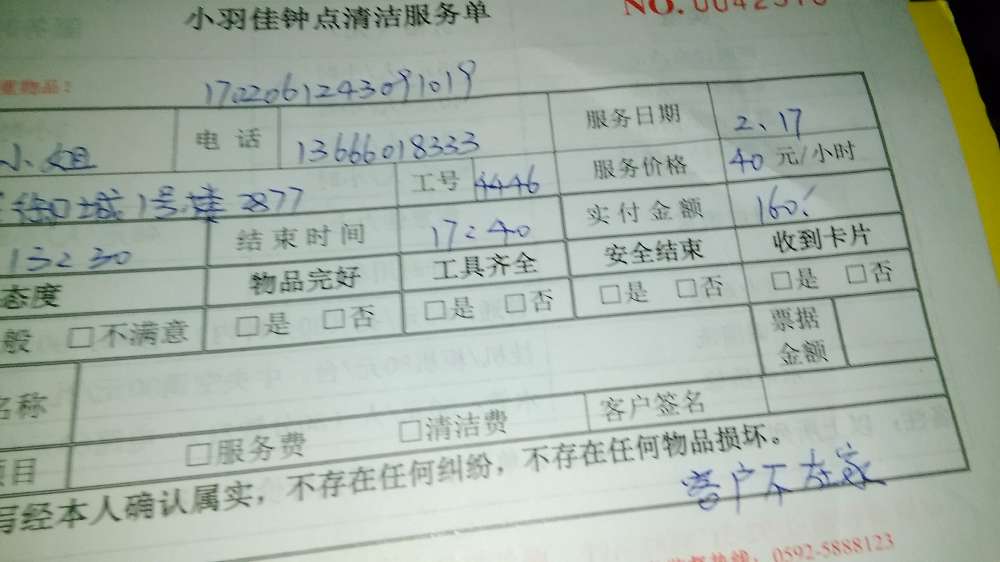 小羽佳钟点清洁服务单 NO. 0042576
重物品：
1702061243091019
小姐 电话 13666018333 服务日期 2、17
1号楼 2877 工号 4446 服务价格 40 元/小时
13:30 结束时间 17:40 实付金额 160.
态度 物品完好 工具齐全 安全结束 收到卡片
般 □不满意 □是 □否 □是 □否 □是 □否 □是 □否
票据金额
名称
项目 □服务费 □清洁费 客户签名
写经本人确认属实，不存在任何纠纷，不存在任何物品损坏。
客户不在家
监督热线：0592-5888123